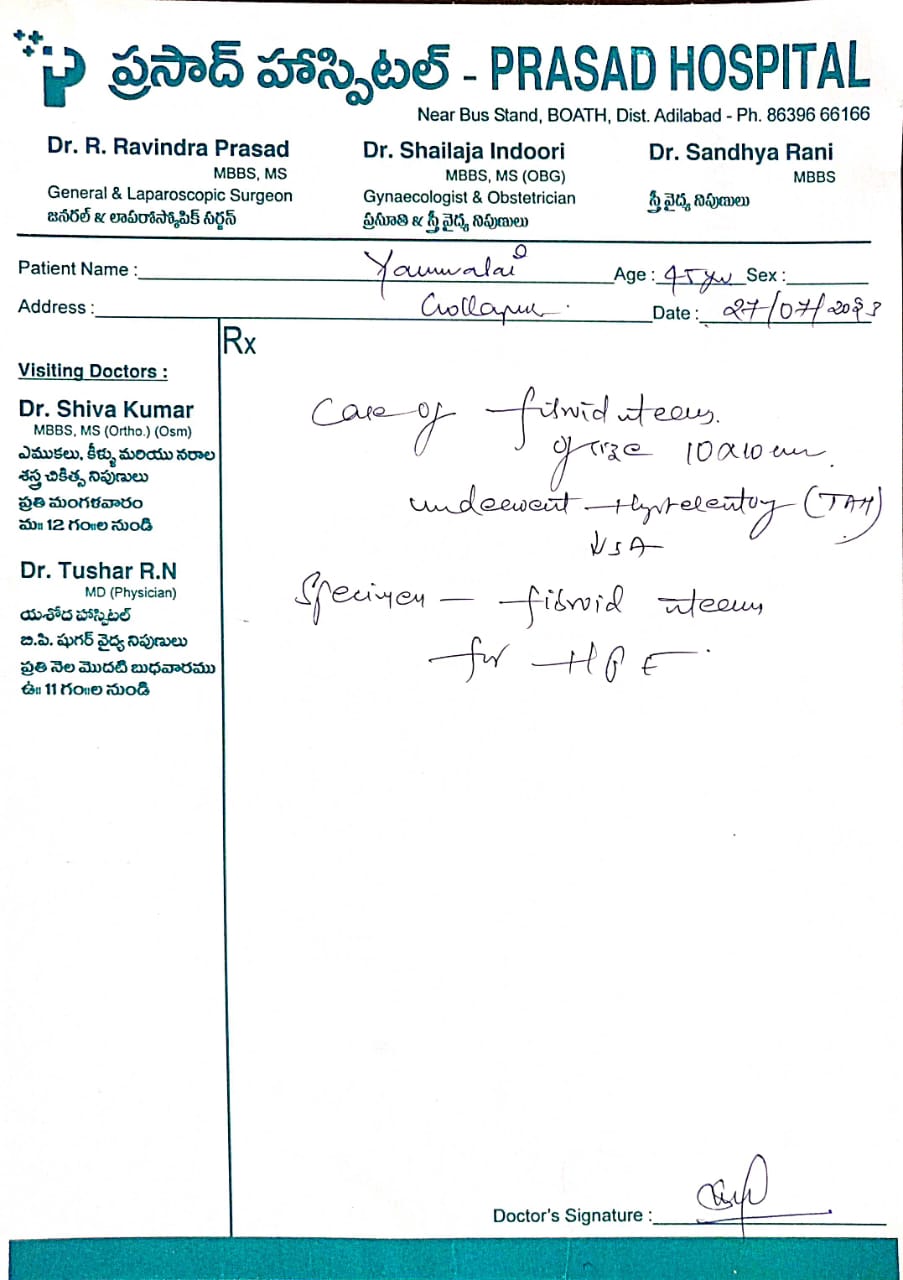 ప్రసాద్ హాస్పిటల్ - PRASAD HOSPITAL
Near Bus Stand, BOATH, Dist. Adilabad - Ph. 86396 66166
Dr. R. Ravindra Prasad
MBBS, MS
General & Laparoscopic Surgeon
జనరల్ & లాపరోస్కోపిక్ సర్జన్
Dr. Shailaja Indoori
MBBS, MS (OBG)
Gynaecologist & Obstetrician
ప్రసూతి & స్త్రీ వైద్య నిపుణులు
Dr. Sandhya Rani
MBBS
స్త్రీ వైద్య నిపుణులు
Patient Name : Age : 45 yrs Sex :
Address : Date : 27/07/2023
Rx
Visiting Doctors :
Dr. Shiva Kumar
MBBS, MS (Ortho.) (Osm)
ఎముకలు, కీళ్ళు మరియు నరాల
శస్త్ర చికిత్స నిపుణులు
ప్రతి మంగళవారం
మ॥ 12 గం॥ల నుండి
Dr. Tushar R.N
MD (Physician)
యశోద హాస్పిటల్
బి.పి. షుగర్ వైద్య నిపుణులు
ప్రతి నెల మొదటి బుధవారము
ఉ॥ 11 గం॥ల నుండి
Case of fibroid uterus.
of size 10x10 cm.
underwent Hysterectomy (TAH)
Specimen - fibroid uterus
for HPE
Doctor's Signature :